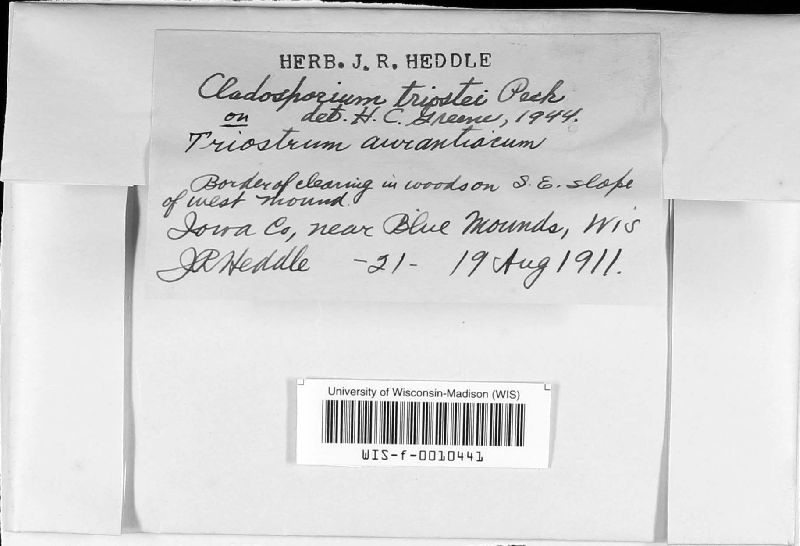 HERB. J. R. HEDDLE
Cladosporium triostei Peck
on det. H. C. Greene, 1944.
Triostrum aurantiacum
Border of clearing in woods on S. E. slope
of west mound.
Iowa Co, near Blue Mounds, Wis
JR Heddle -21- 19 Aug 1911.
University of Wisconsin-Madison (WIS)
WIS-f-0010441